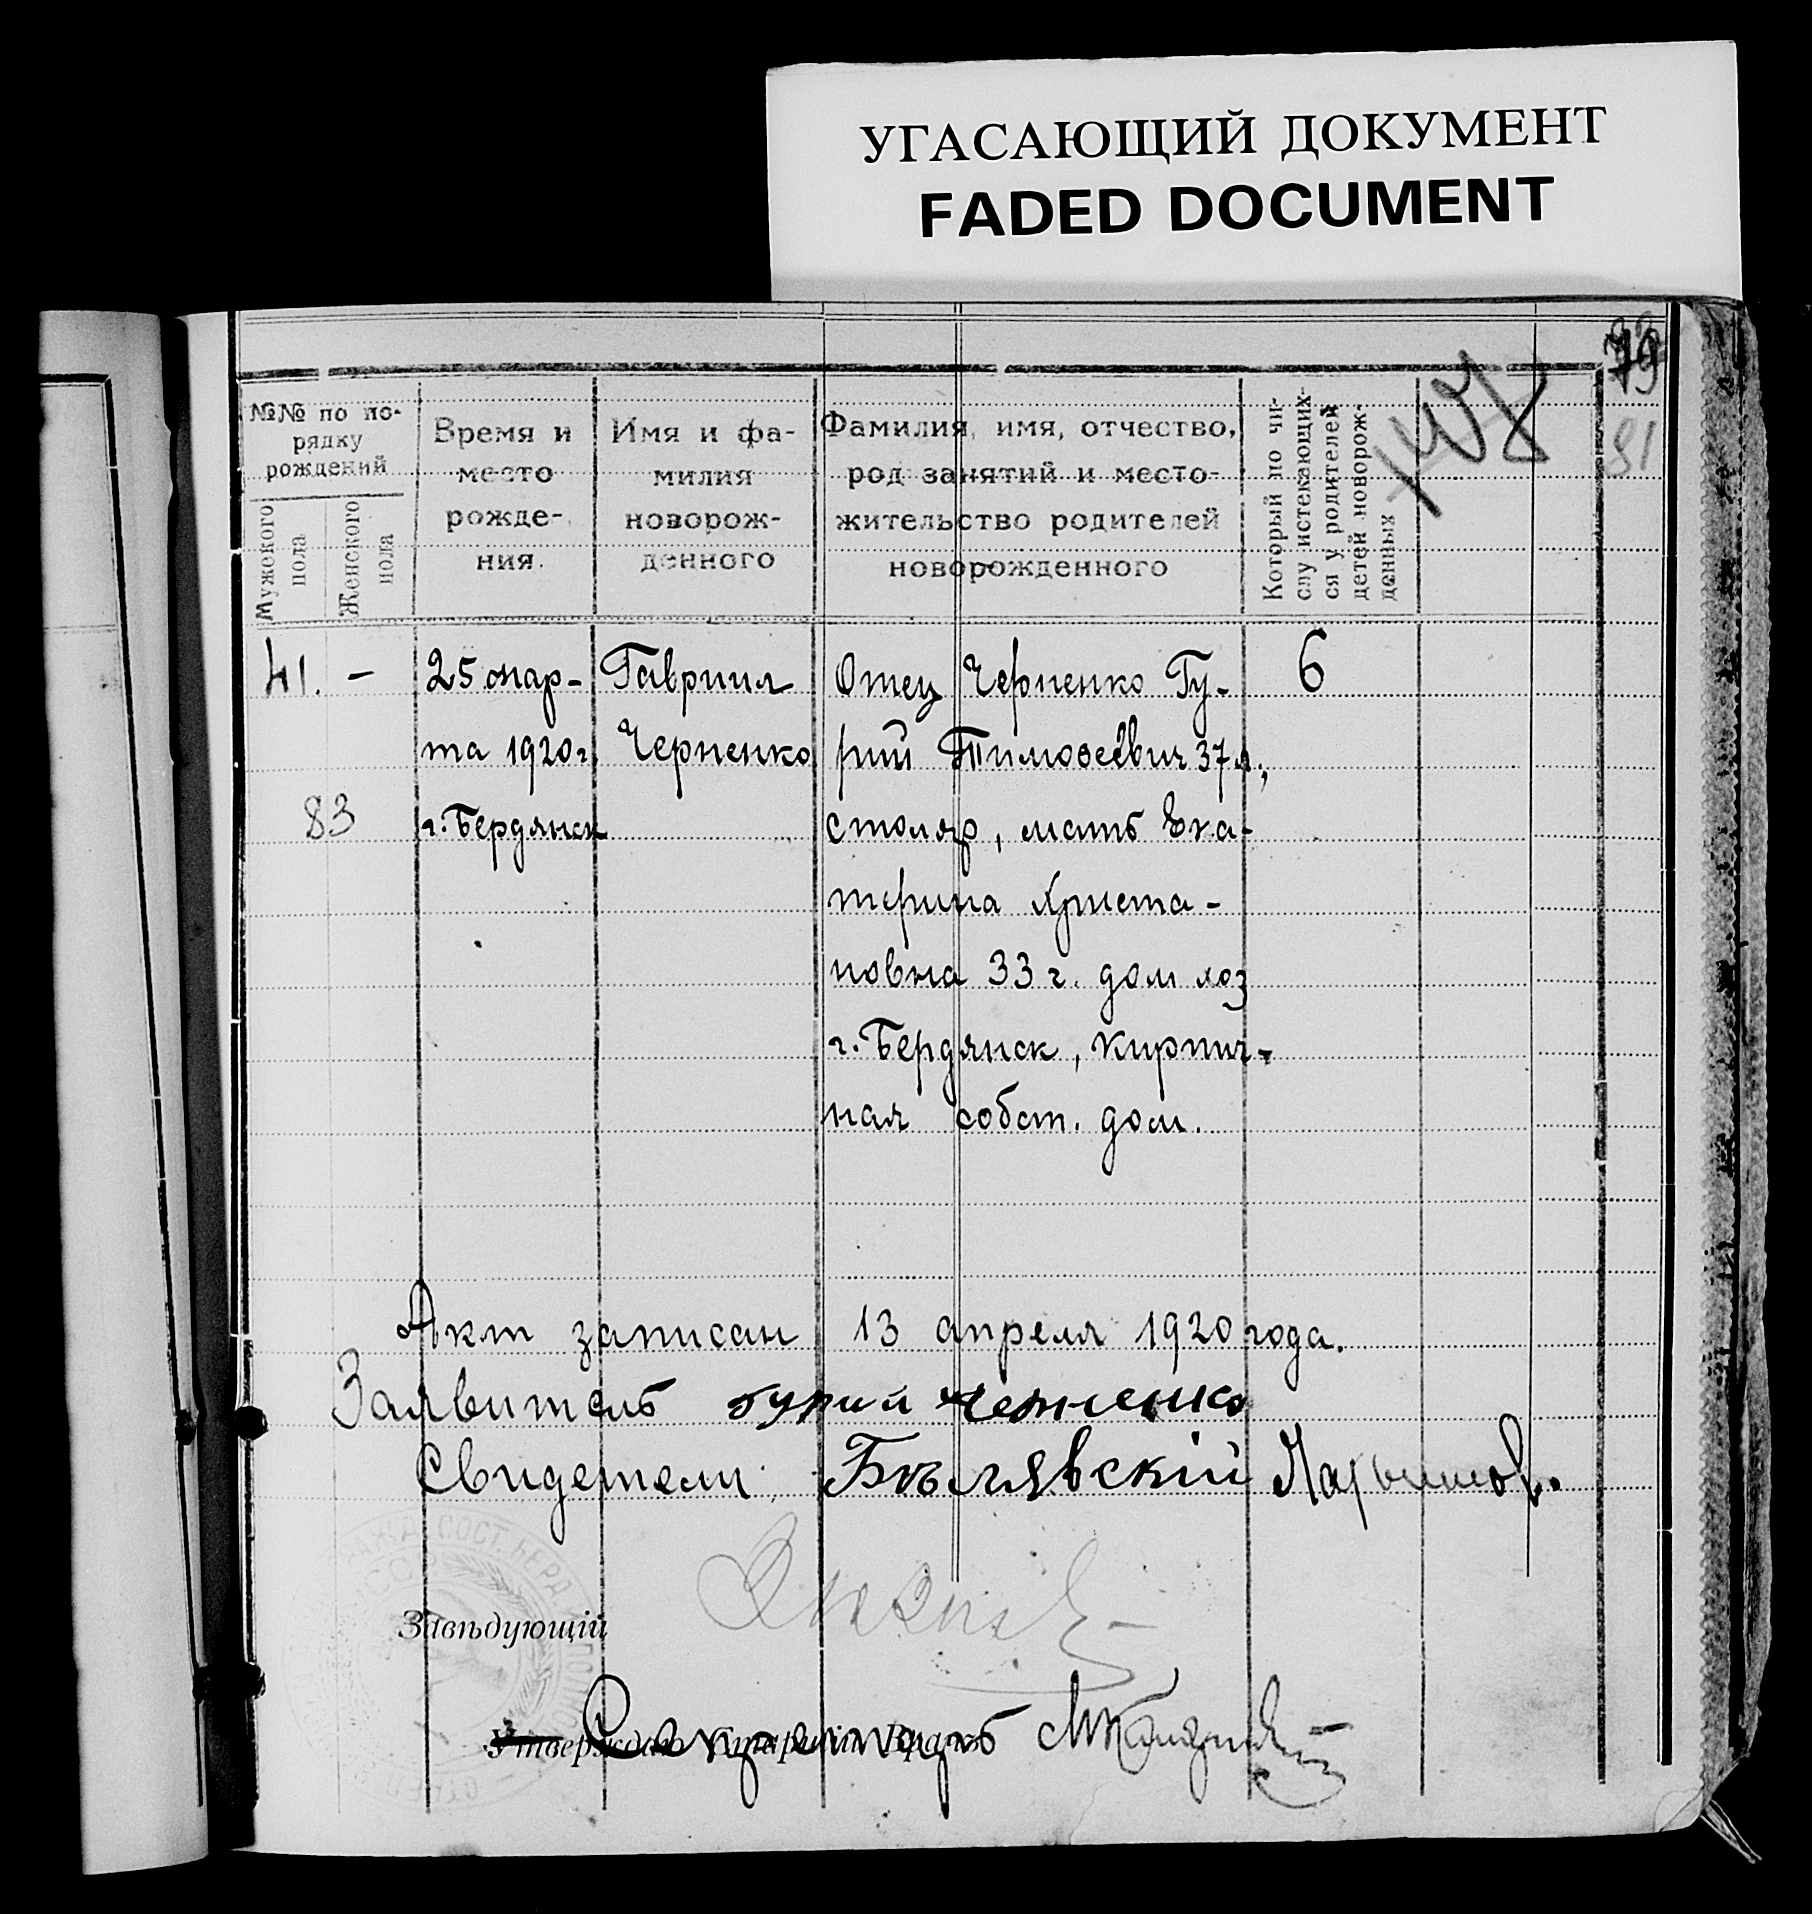 УГАСАЮЩИЙ ДОКУМЕНТ
FADED DOCUMENT
81
№№ по по-
рядку
рождений
Мужского
пола
Женского
пола
Время и
место
рожде-
ния.
Имя и фа-
милия
новорож-
денного
Фамилия, имя, отчество,
род занятий и место-
жительство родителей
новорожденного
Который по чи-
слу истекающих-
ся у родителей
детей новорож-
денных
41. – 25 мар- Гавриил Отец Черненко Гу- 6
та 1920 г. Черненко рий Тимофеевич 37 л.,
83 г. Бердянск столяр, мать Ека-
терина Христа-
новна 33 г. дом хоз
г. Бердянск, Кирпич-
ная собст. дом.
Акт записан 13 апреля 1920 года.
Заявитель гурий Черненко
Свидетели: Бѣлявскій
Завѣдующій
Секретарь